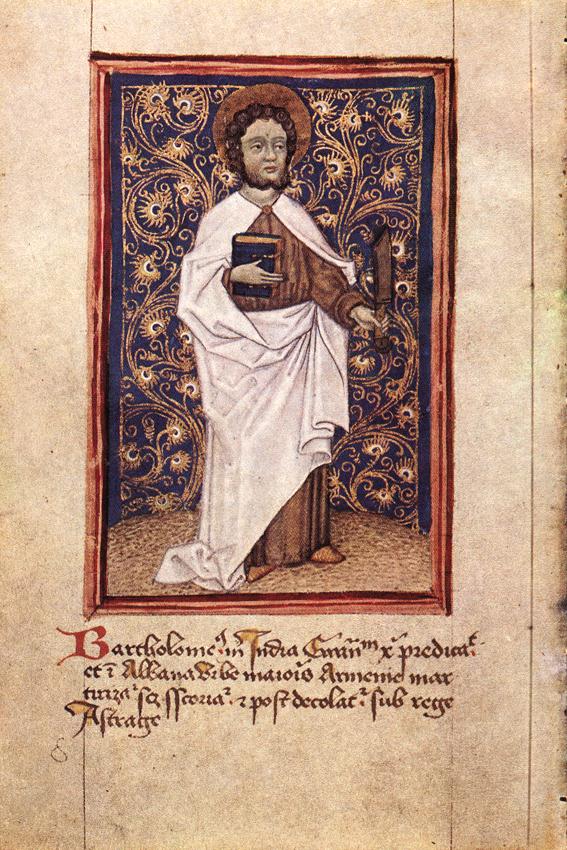 Bartholome⁹ in India Ewañ^m xp̄ predicat᷑.
et ī Albana vrbe maioris Armenie mar
tirizat᷑ sꝫ excoriat᷑. ⁊ post decolat᷑ sub rege
Astrage